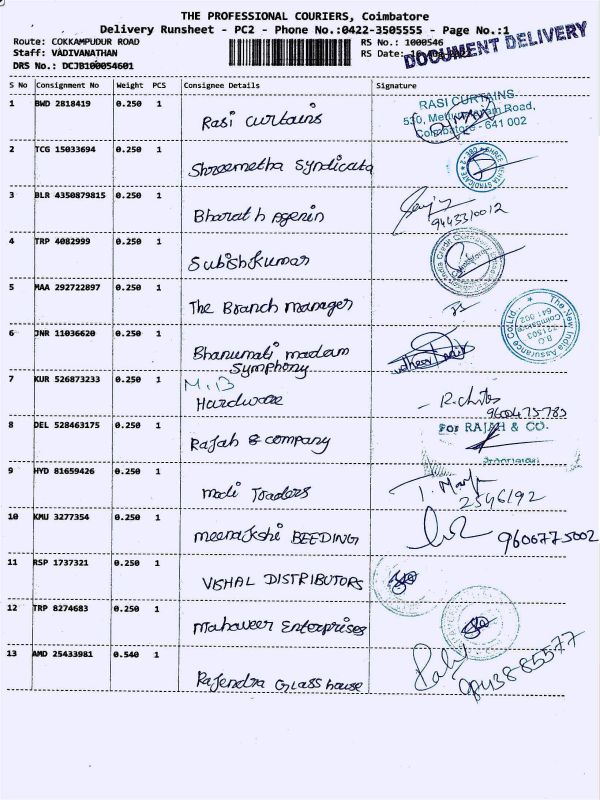 THE PROFESSIONAL COURIERS, Coimbatore
Delivery Runsheet - PC2 - Phone No.:0422-3505555 - Page No.:1
Route: COKKAMPUDUR ROAD RS No.: 1000546
Staff: VADIVANATHAN RS Date:
DRS No.: DCJB100054601
DOCUMENT DELIVERY
S No Consignment No Weight PCS Consignee Details Signature
1 BWD 2818419 0.250 1 Rasi curtains
RASI CURTAINS
Road,
Coimbatore - 641 002
2 TCG 15033694 0.250 1 Shreemetha Syndicata
3 BLR 4350879815 0.250 1 Bharath Agenin
9443310012
4 TRP 4082999 0.250 1 Subishkumar
5 MAA 292722897 0.250 1 The Branch manager
The New India Assurance Co. Ltd.
B.O.
721503
Coimbatore
641 002
6 JNR 11036620 0.250 1 Bhanumati madam
Symphony
7 KUR 526873233 0.250 1 M.B
Hardware
R.chitra
9600475785
8 DEL 528463175 0.250 1 Rajah & company
For RAJAH & CO.
9 HYD 81659426 0.250 1 modi Traders
2546192
10 KMU 3277354 0.250 1 meenakshi BEEDING
9606775002
11 RSP 1737321 0.250 1 VISHAL DISTRIBUTORS
12 TRP 8274683 0.250 1 Mahaveer Enterprises
13 AMD 25433981 0.540 1 Rajendra Glass house
9843885577